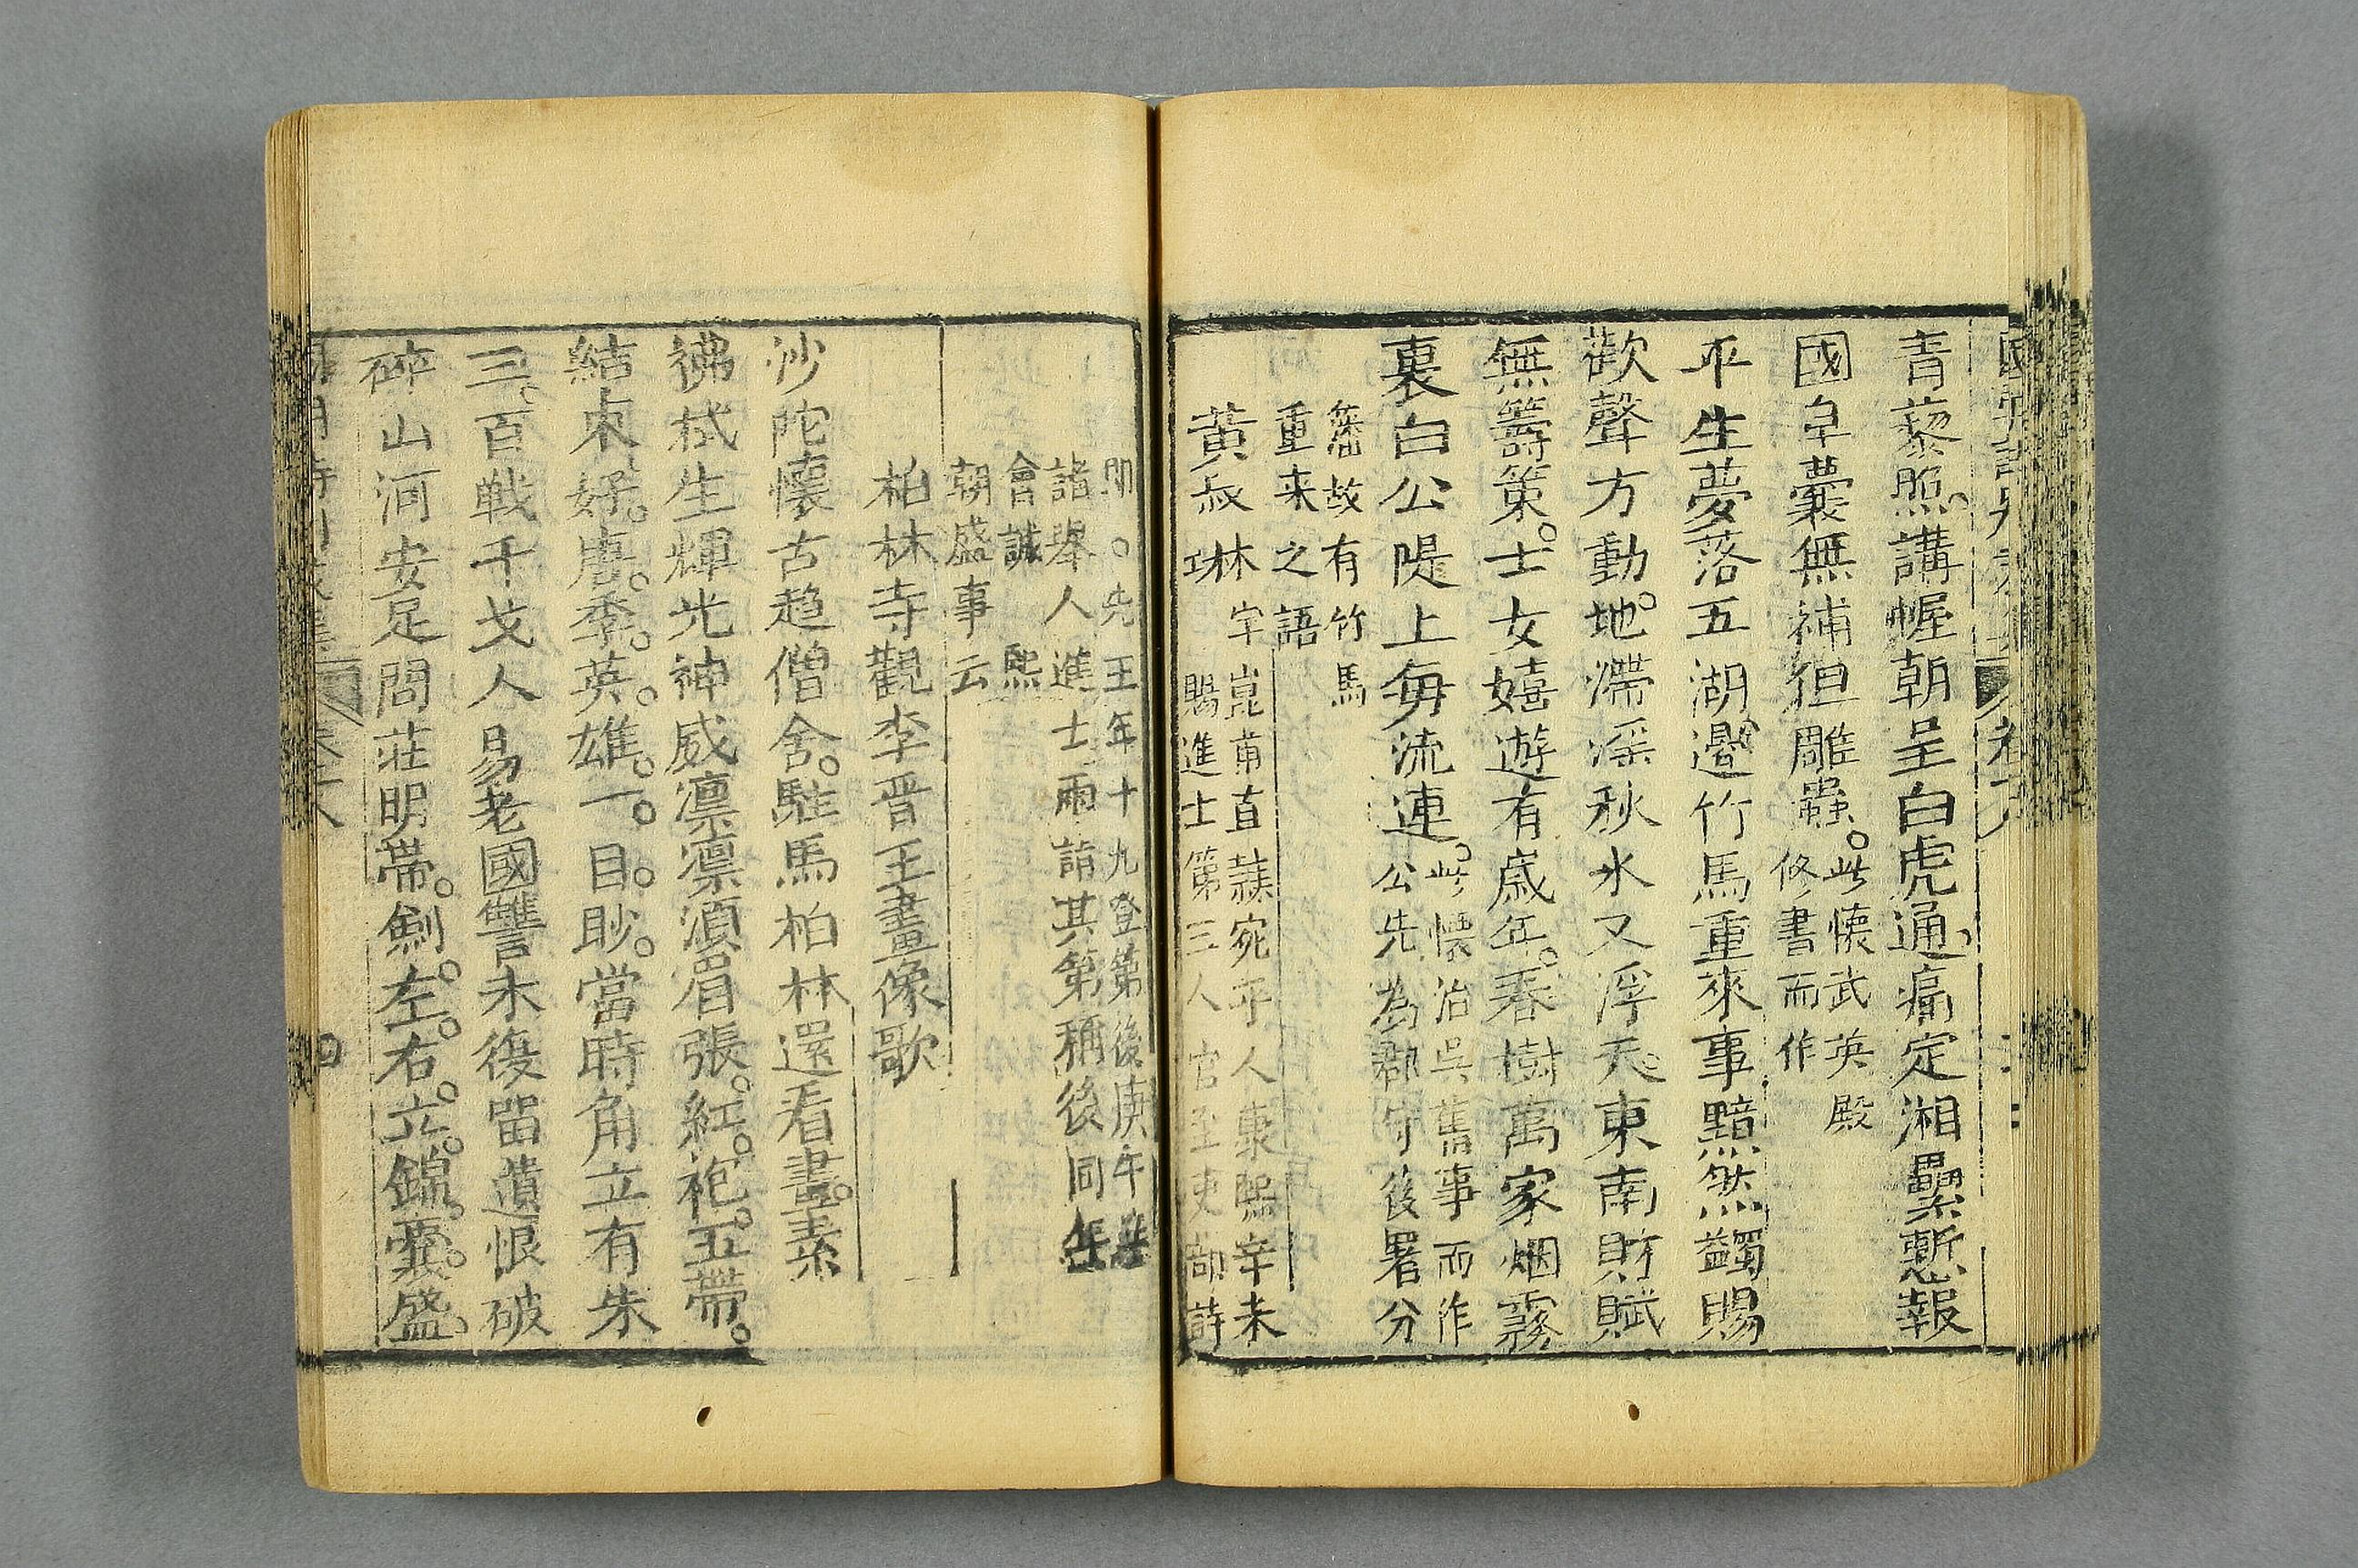 青藜照講幄朝呈白虎通痛定湘纍慙報
國皁囊無補但雕蟲此懷武英殿
修書而作
平生夢落五湖邊竹馬重來事黯然蠲賜
歡聲方動地滯淫秋水又浮天東南財賦
無籌策士女嬉遊有歲年春樹萬家烟霧
裏白公隄上每流連此懷治吳舊事而作
公先為郡守後署分
藩故有竹馬
重来之語
黃叔琳
字崑圃直隷宛平人康熙辛未
賜進士第三人官至吏部詩
郎○先王年十九登第後庚午
諸舉人進士兩請其第稱後同年
會誠熙
朝盛事云
柏林寺觀李晋王畫像歌
沙陀懷古趋僧舍駐馬柏林還看畫素
彿拭生輝光神威凛凛湏眉張紅袍玉帶
結束好唐季英雄一目眇當時角立有朱
三百戦千戈人易老國讐未復留遺恨破
碎山河安足問荘明帶劍左右立錦囊盛